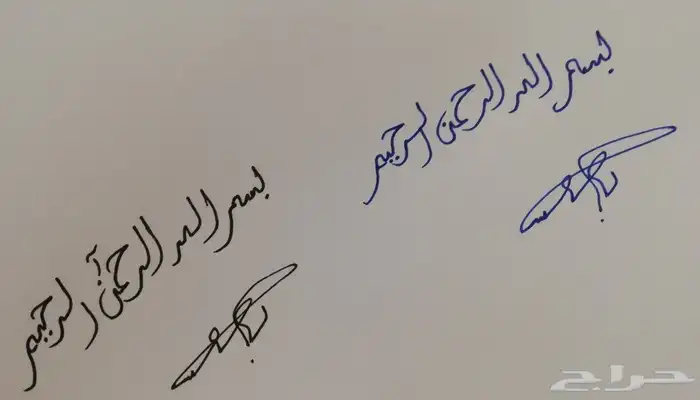 بسم الله الرحمن الرحيم
بسم الله الرحمن الرحيم
حراج